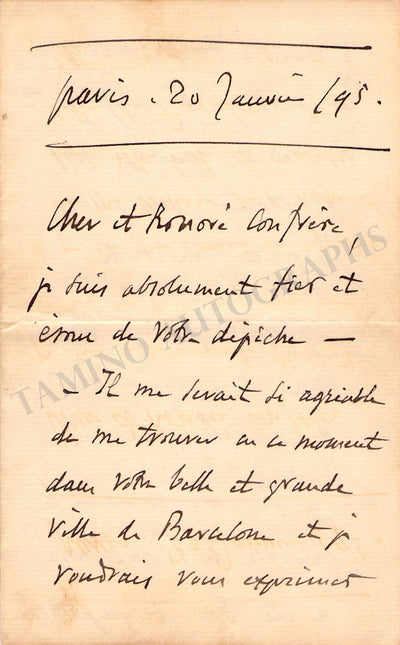 Paris . 20 Janvier /95.
Cher et honoré confrère,
je suis absolument fier et
ému de votre dépêche —
— Il me serait si agréable
de me trouver en ce moment
dans votre belle et grande
ville de Barcelone et je
voudrais vous exprimer
TAMINO AUTOGRAPHS